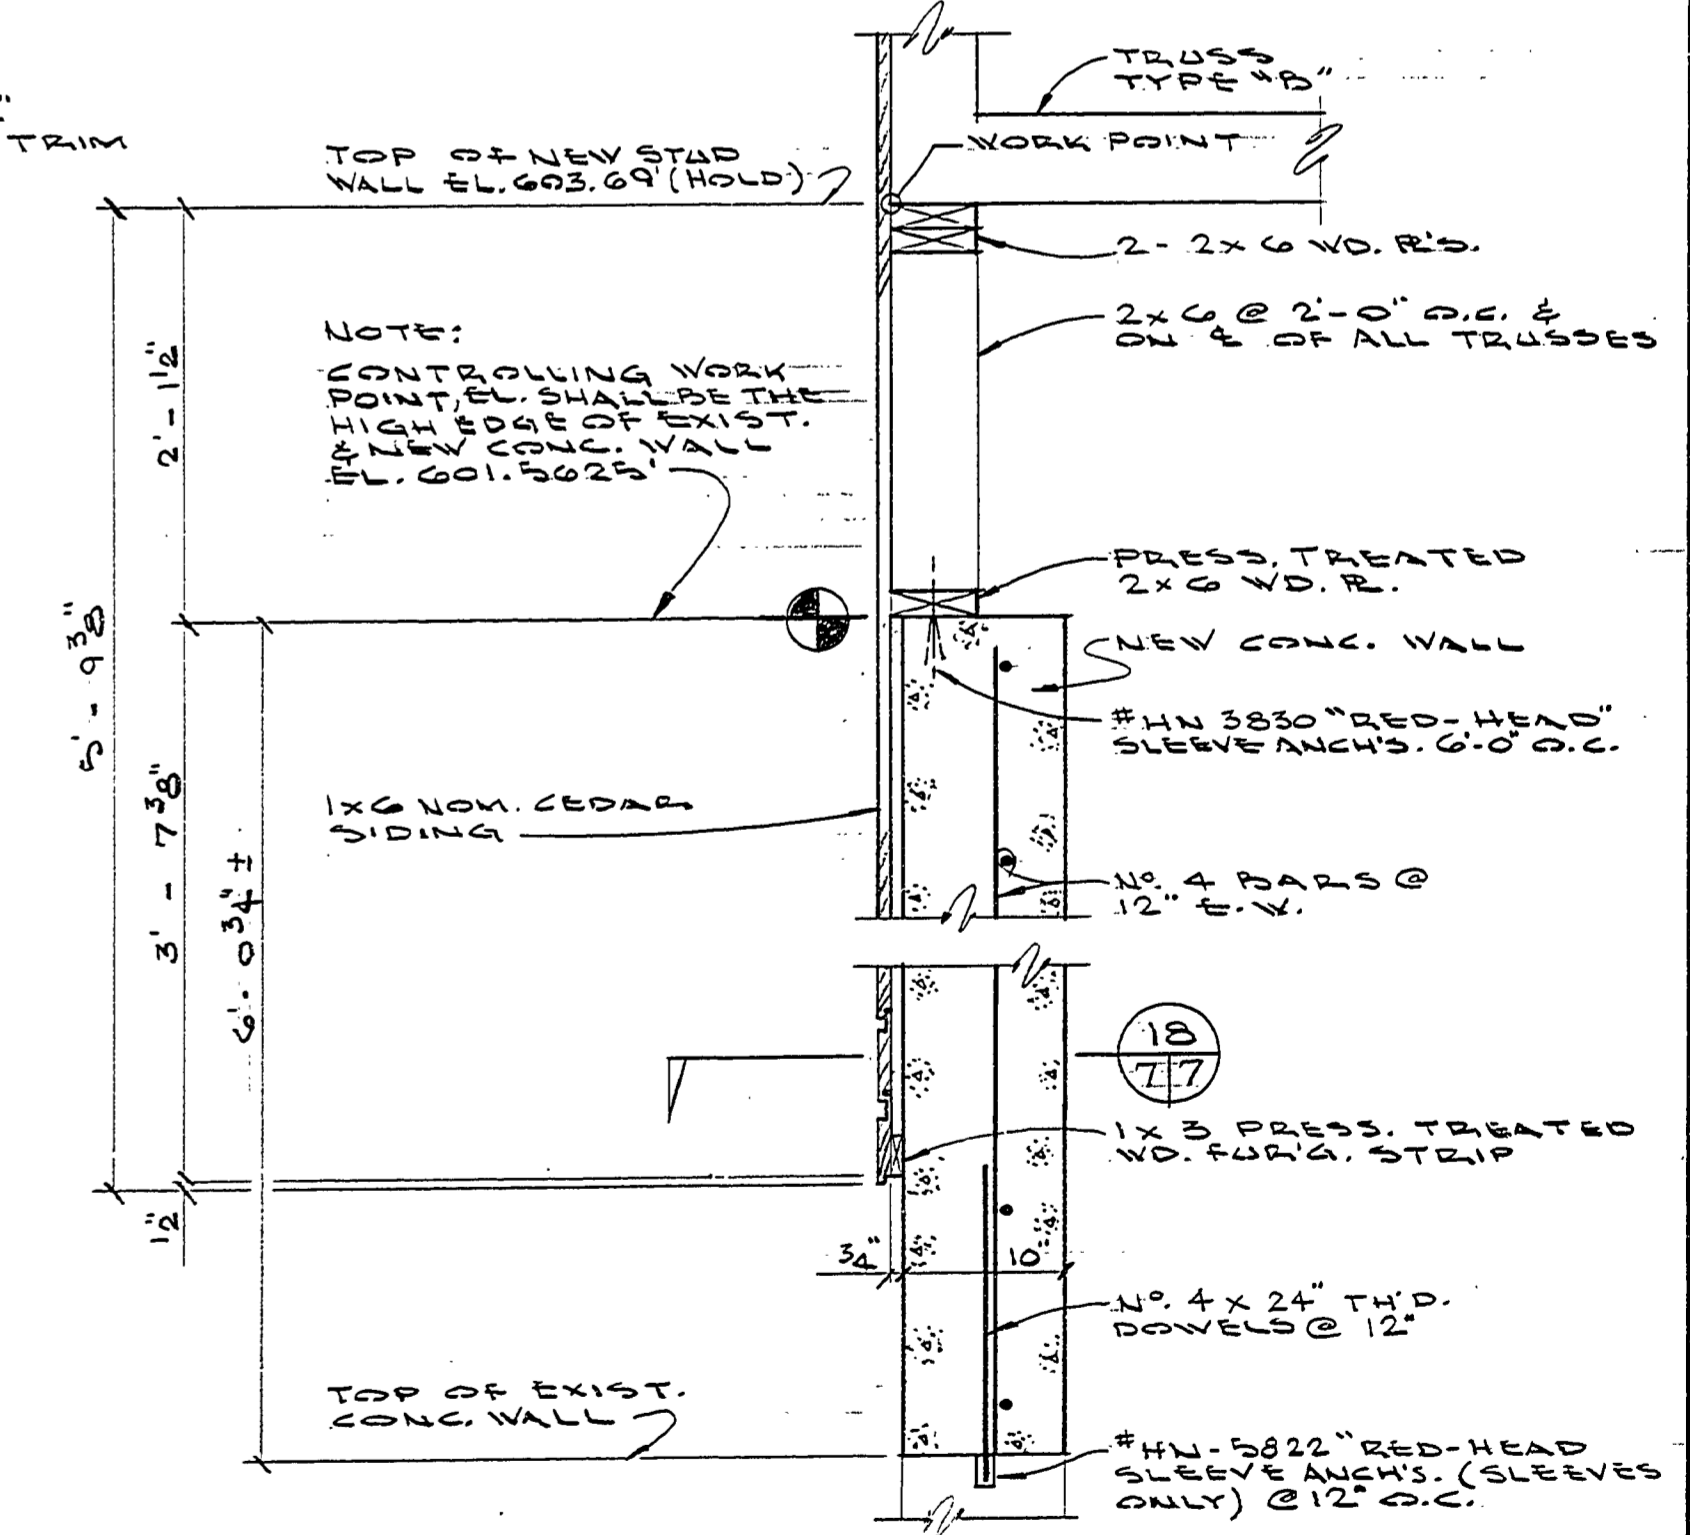 TRIM
TOP OF NEW STUD
WALL EL. 603.69' (HOLD)
TRUSS
TYPE "B"
WORK POINT
2 - 2x6 WD. PL'S.
2x6 @ 2'-0" O.C. &
ON ℄ OF ALL TRUSSES
NOTE:
CONTROLLING WORK
POINT, EL. SHALL BE THE
HIGH EDGE OF EXIST.
& NEW CONC. WALL
EL. 601.5625'
2' - 1 1/2"
PRESS. TREATED
2x6 WD. PL.
NEW CONC. WALL
#HN 3830 "RED-HEAD"
SLEEVE ANCH'S. 6'-0" O.C.
5' - 9 3/8"
3' - 7 3/8"
6'- 0 3/4" ±
1x6 NOM. CEDAR
SIDING
No. 4 BARS @
12" E.W.
18
7 7
1 x 3 PRESS. TREATED
WD. FUR'G. STRIP
1/2"
3/4"
10"
No. 4 x 24" TH'D.
DOWELS @ 12"
TOP OF EXIST.
CONC. WALL
#HN-5822 "RED-HEAD
SLEEVE ANCH'S. (SLEEVES
ONLY) @ 12" O.C.